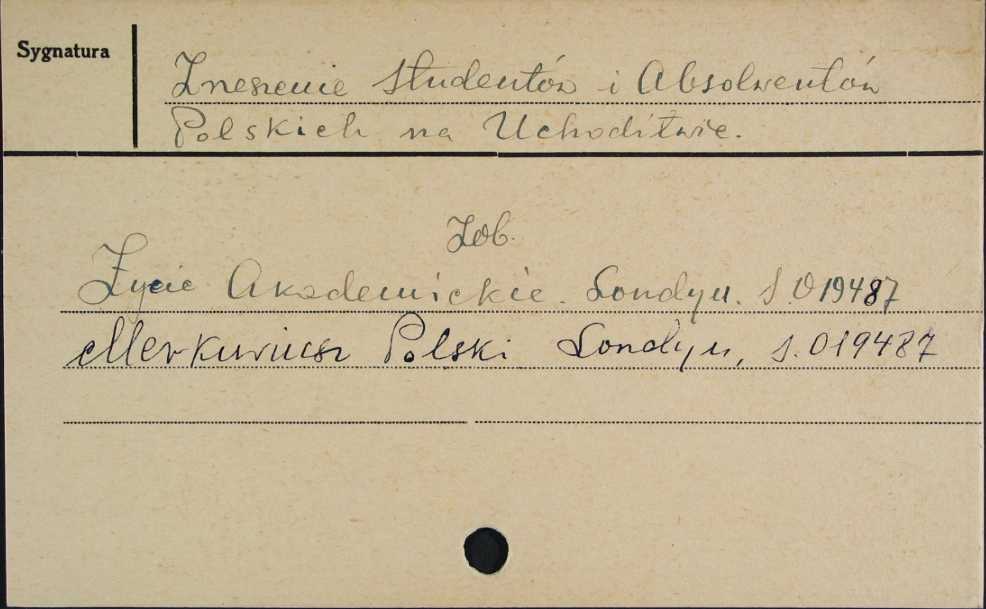 Sygnatura
Zneszenie Studentów i Absolwentów
Polskich na Uchodźtwie.
Zob.
Życie Akademickie. Londyn. S.019487
Merkuriusz Polski Londyn, S.019487